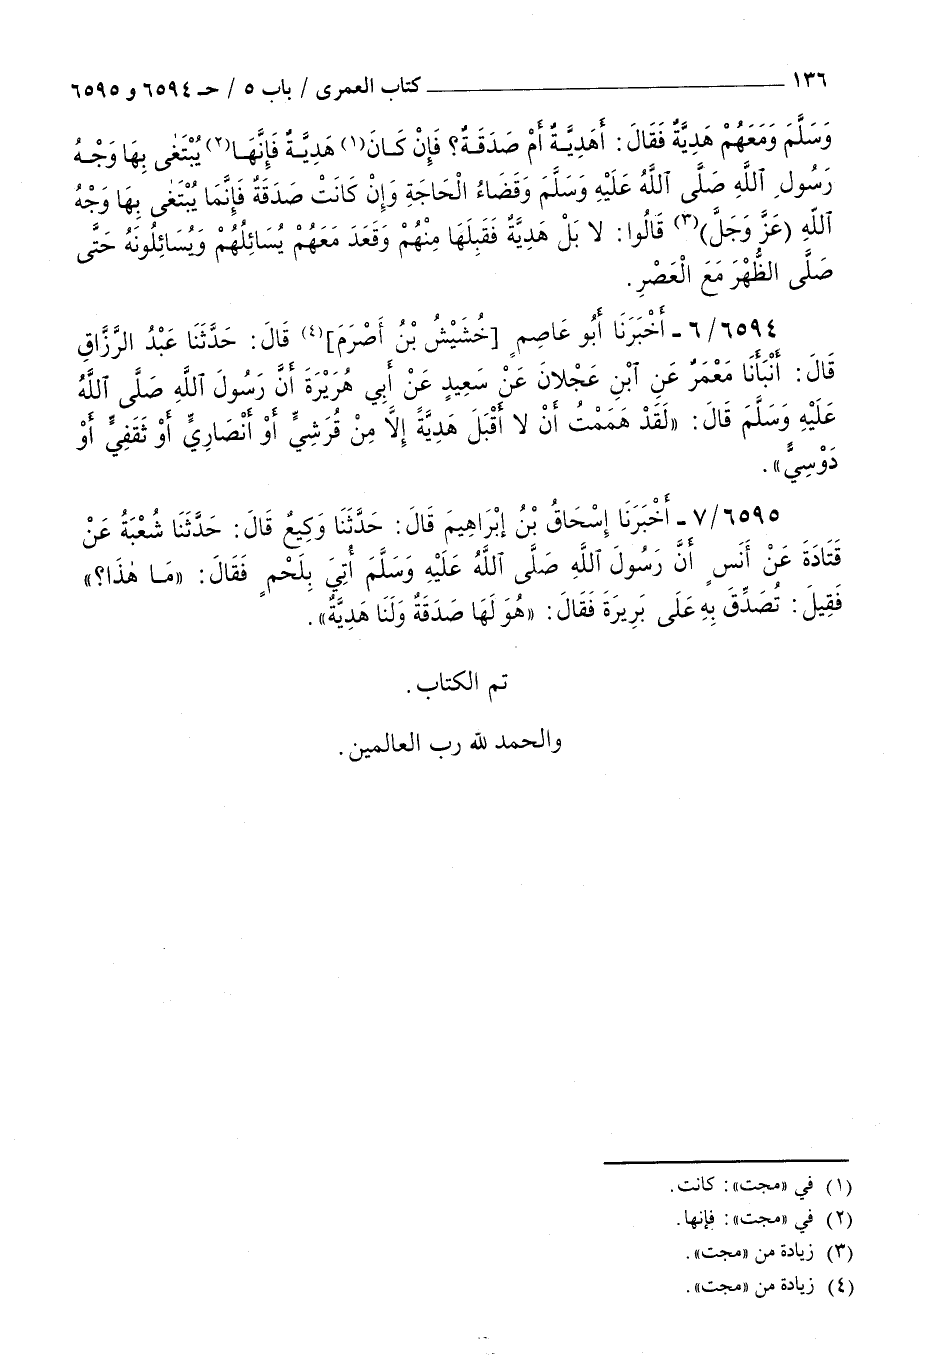 ١٣٦ ــــــــــــــــــــــــــــــ كتاب العمرى / باب ٥ / حـ ٦٥٩٤ و ٦٥٩٥
وَسَلَّمَ وَمَعَهُمْ هَدِيَّةٌ فَقَالَ: أَهَدِيَّةٌ أَمْ صَدَقَةٌ؟ فَإِنْ كَانَ(١) هَدِيَّةٌ فَإِنَّهَا(٢) يُبْتَغٰى بِهَا وَجْهُ
رَسُولِ ٱللَّهِ صَلَّى ٱللَّهُ عَلَيْهِ وَسَلَّمَ وَقَضَاءُ الْحَاجَةِ وَإِنْ كَانَتْ صَدَقَةٌ فَإِنَّمَا يُبْتَغٰى بِهَا وَجْهُ
ٱللَّهِ (عَزَّ وَجَلَّ)(٣) قَالُوا: لا بَلْ هَدِيَّةٌ فَقَبِلَهَا مِنْهُمْ وَقَعَدَ مَعَهُمْ يُسَائِلُهُمْ وَيُسَائِلُونَهُ حَتَّى
صَلَّى الظُّهْرَ مَعَ الْعَصْرِ.
٦/٦٥٩٤ - أَخْبَرَنَا أَبُو عَاصِمٍ [خُشَيْشُ بْنُ أَصْرَمَ](٤) قَالَ: حَدَّثَنَا عَبْدُ الرَّزَّاقِ
قَالَ: أَنْبَأَنَا مَعْمَرٌ عَنِ ٱبْنِ عَجْلانَ عَنْ سَعِيدٍ عَنْ أَبِي هُرَيْرَةَ أَنَّ رَسُولَ ٱللَّهِ صَلَّى ٱللَّهُ
عَلَيْهِ وَسَلَّمَ قَالَ: «لَقَدْ هَمَمْتُ أَنْ لا أَقْبَلَ هَدِيَّةً إِلَّا مِنْ قُرَشِيٍّ أَوْ أَنْصَارِيٍّ أَوْ ثَقَفِيٍّ أَوْ
دَوْسِيٍّ».
٧/٦٥٩٥ - أَخْبَرَنَا إِسْحَاقُ بْنُ إِبْرَاهِيمَ قَالَ: حَدَّثَنَا وَكِيعٌ قَالَ: حَدَّثَنَا شُعْبَةُ عَنْ
قَتَادَةَ عَنْ أَنَسٍ أَنَّ رَسُولَ ٱللَّهِ صَلَّى ٱللَّهُ عَلَيْهِ وَسَلَّمَ أُتِيَ بِلَحْمٍ فَقَالَ: «مَا هٰذَا؟»
فَقِيلَ: تُصَدِّقَ بِهِ عَلَى بَرِيرَةَ فَقَالَ: «هُوَ لَهَا صَدَقَةٌ وَلَنَا هَدِيَّةٌ».
تم الكتاب.
والحمد لله رب العالمين.
(١) في «مجت»: كانت.
(٢) في «مجت»: فإنها.
(٣) زيادة من «مجت».
(٤) زيادة من «مجت».